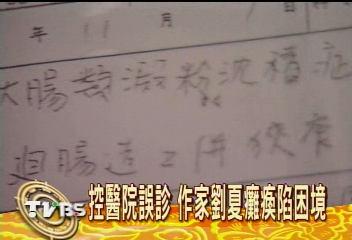 年 11 月
大腸類澱粉沈積症
迴腸造口併
TVBS
控醫院誤診 作家劉夏癱瘓陷困境